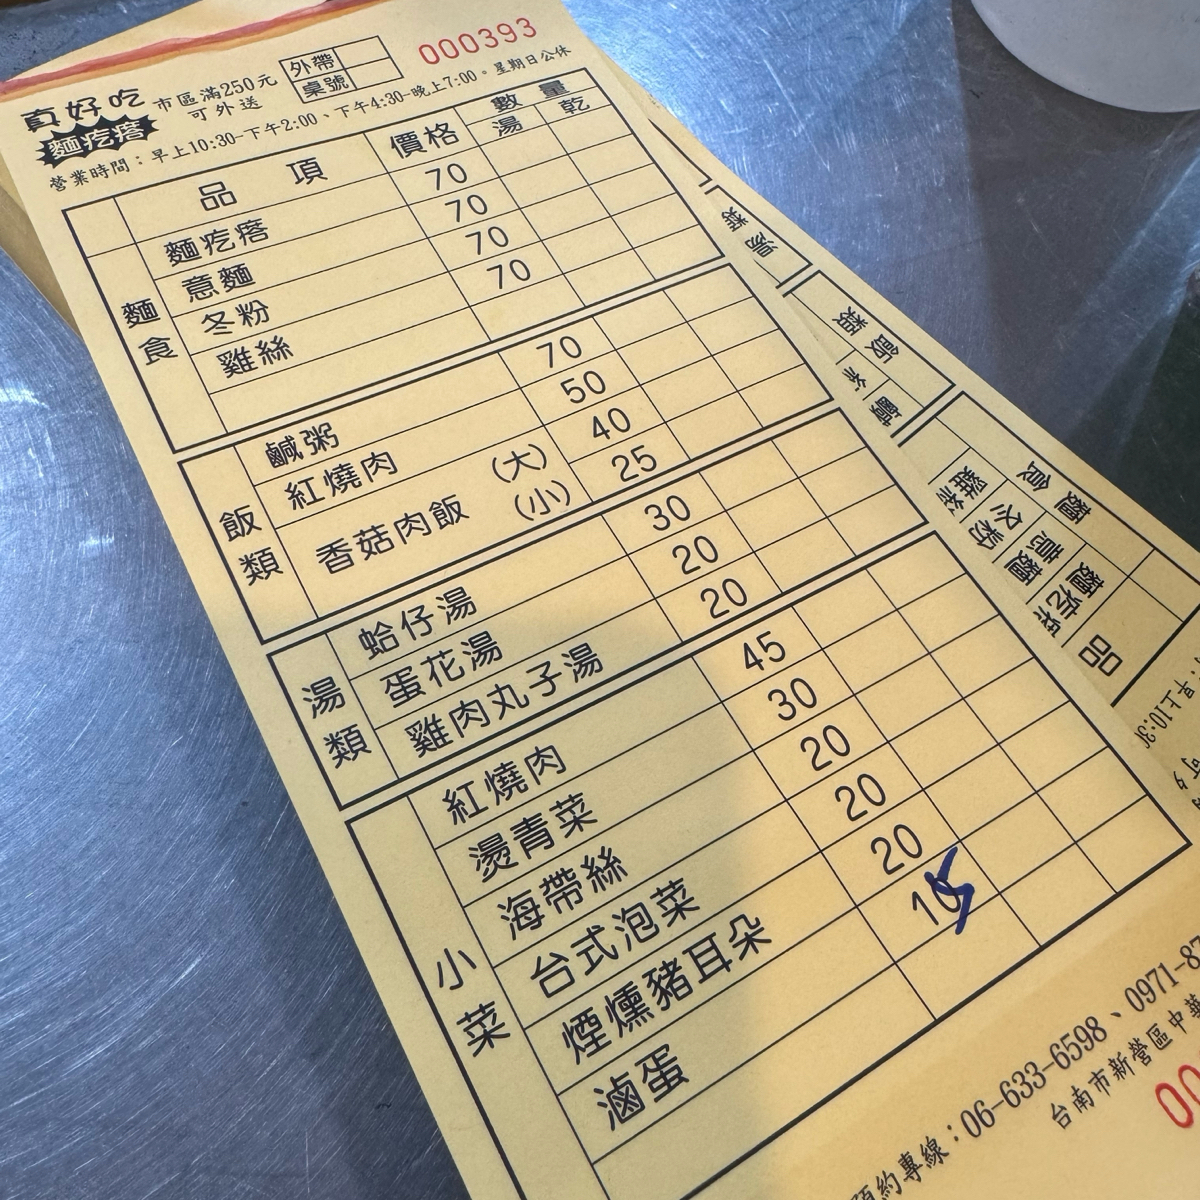 000393
外帶
桌號
真好吃
麵疙瘩
市區滿250元
可外送
營業時間：早上10:30-下午2:00、下午4:30-晚上7:00。星期日公休
品項 價格 數量
湯 乾
麵食
麵疙瘩 70
意麵 70
冬粉 70
雞絲 70
飯類
鹹粥 70
紅燒肉 50
香菇肉飯 (大) 40
(小) 25
湯類
蛤仔湯 30
蛋花湯 20
雞肉丸子湯 20
小菜
紅燒肉 45
燙青菜 30
海帶絲 20
台式泡菜 20
煙燻豬耳朵 20
滷蛋 15
預約專線：06-633-6598、0971-87
台南市新營區中華
00
湯類
飯類
鹹
麵食
雞絲
冬粉
意麵
麵疙瘩
品
早上10:30
可外